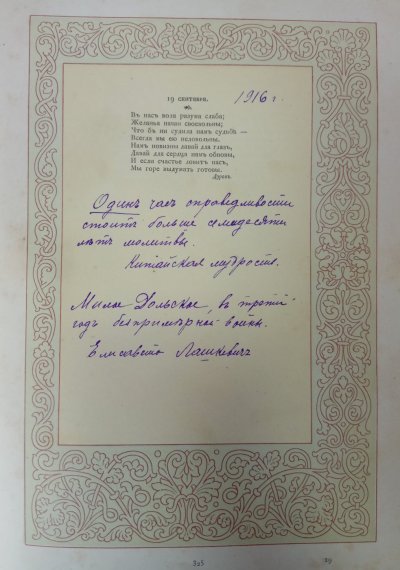 19 сентября. 1916 г.
Въ насъ воля разума слаба;
Желанья наши своевольны;
Что бъ ни судила намъ судьба —
Всегда мы ею недовольны.
Намъ новизны давай для глазъ,
Давай для сердца намъ обновы,
И если счастье ловитъ насъ,
Мы горе выдумать готовы.
Дуровъ.
Одинъ часъ справедливости
стоитъ больше семидесяти
лѣтъ молитвы.
Китайская мудрость.
Милое Дольское, въ третій
годъ безпримѣрной войны.
Елисавета Лашкевичъ
325